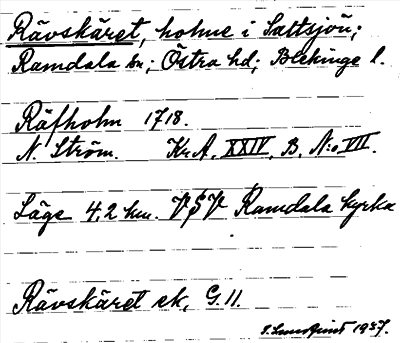 Rävskäret, holme i Saltsjön;
Ramdala sn; Östra hd; Blekinge l.
Räfholm 1718.
N. Ström. Kr. A. XXIV, B. N:o VII.
Läge 4.2 km. VSV Ramdala kyrka
Rävskäret ek, G. 11.
1937.